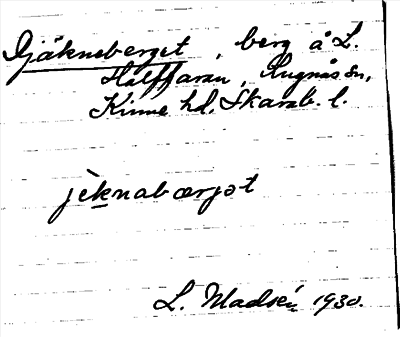 Djäkneberget, berg å L.
Hallfaran, Fugnås sn,
Kinne hd. Skarab. l.
jèknabærjət
L. Madsén 1930.